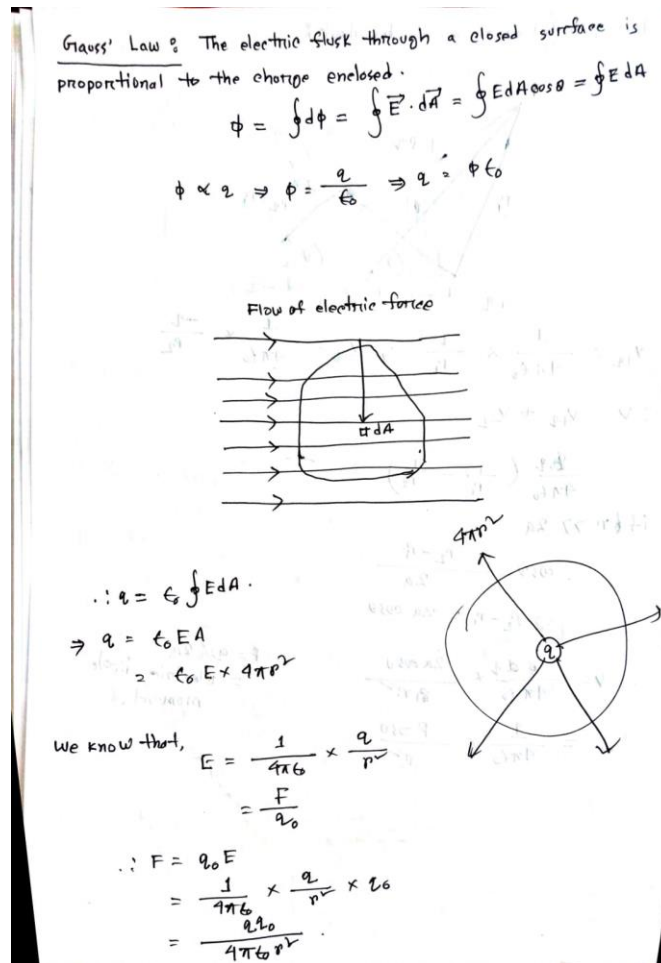 Gauss' Law : The electric flusk through a closed surrface is
proportional to the charge enclosed.
ϕ = ∮dϕ = ∮E⃗·dA⃗ = ∮EdAcosθ = ∮E dA
ϕ ∝ q ⇒ ϕ = q/ϵ₀ ⇒ q = ϕ ϵ₀
Flow of electric force
dA
4πr²
q
∴ q = ϵ₀∮EdA.
⇒ q = ϵ₀EA
= ϵ₀ E × 4πr²
We know that,
E = 1/4πϵ₀ × q/r²
= F/q₀
∴ F = q₀E
= 1/4πϵ₀ × q/r² × q₀
= qq₀/4πϵ₀r².